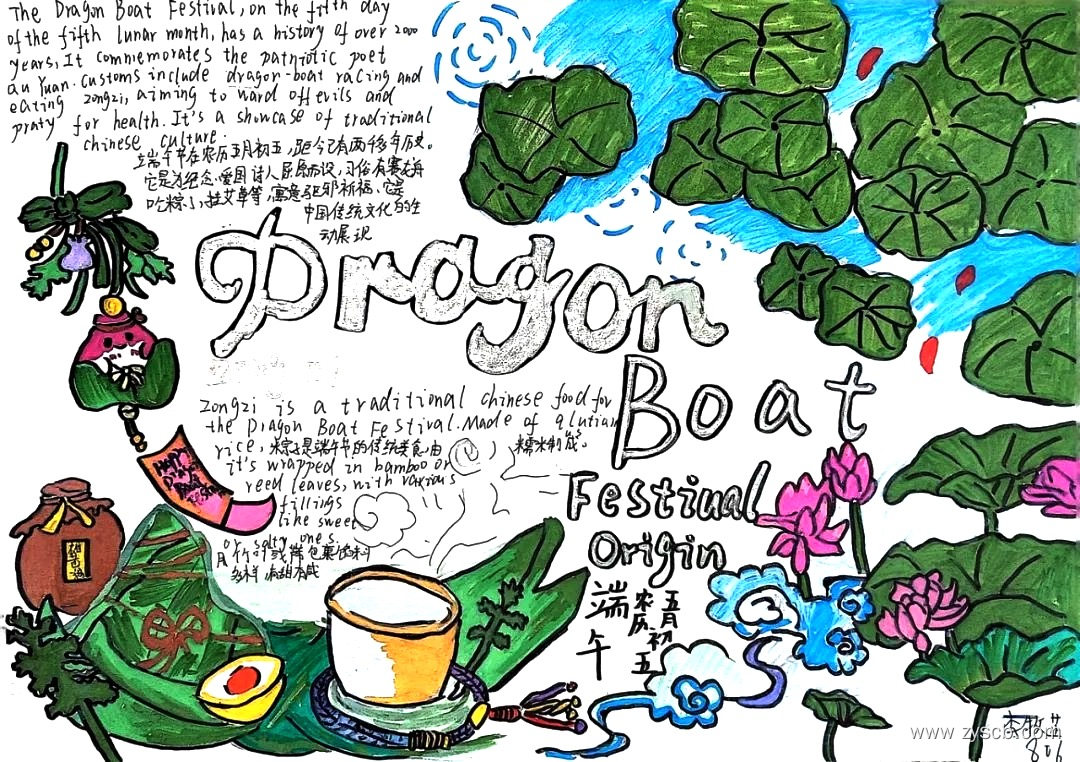 The Dragon Boat Festival, on the fifth day
of the fifth lunar month, has a history of over 2000
years. It commemorates the patriotic poet
qu Yuan. customs include dragon-boat racing and
eating zongzi, aiming to ward off evils and
praty for health. It's a showcase of traditional
chinese culture.
端午节在农历五月初五,距今已有两千多年历史。
它是为纪念爱国诗人屈原而设,习俗有赛龙舟
吃粽子,挂艾草等,寓意驱邪祈福。它是
中国传统文化的生
动展现
Dragon
Boat
Festiual
Origin
端午
农历五月初五
zongzi is a traditional chinese food for
the Dragon Boat Festival. Made of glutian
rice, 粽子是端午节的传统美食,由 糯米制成。
it's wrapped in bamboo or
reed leaves, with various
fillings
like sweet
or salty one s.
用竹叶或苇
有甜有咸
www.zyscb.com
806